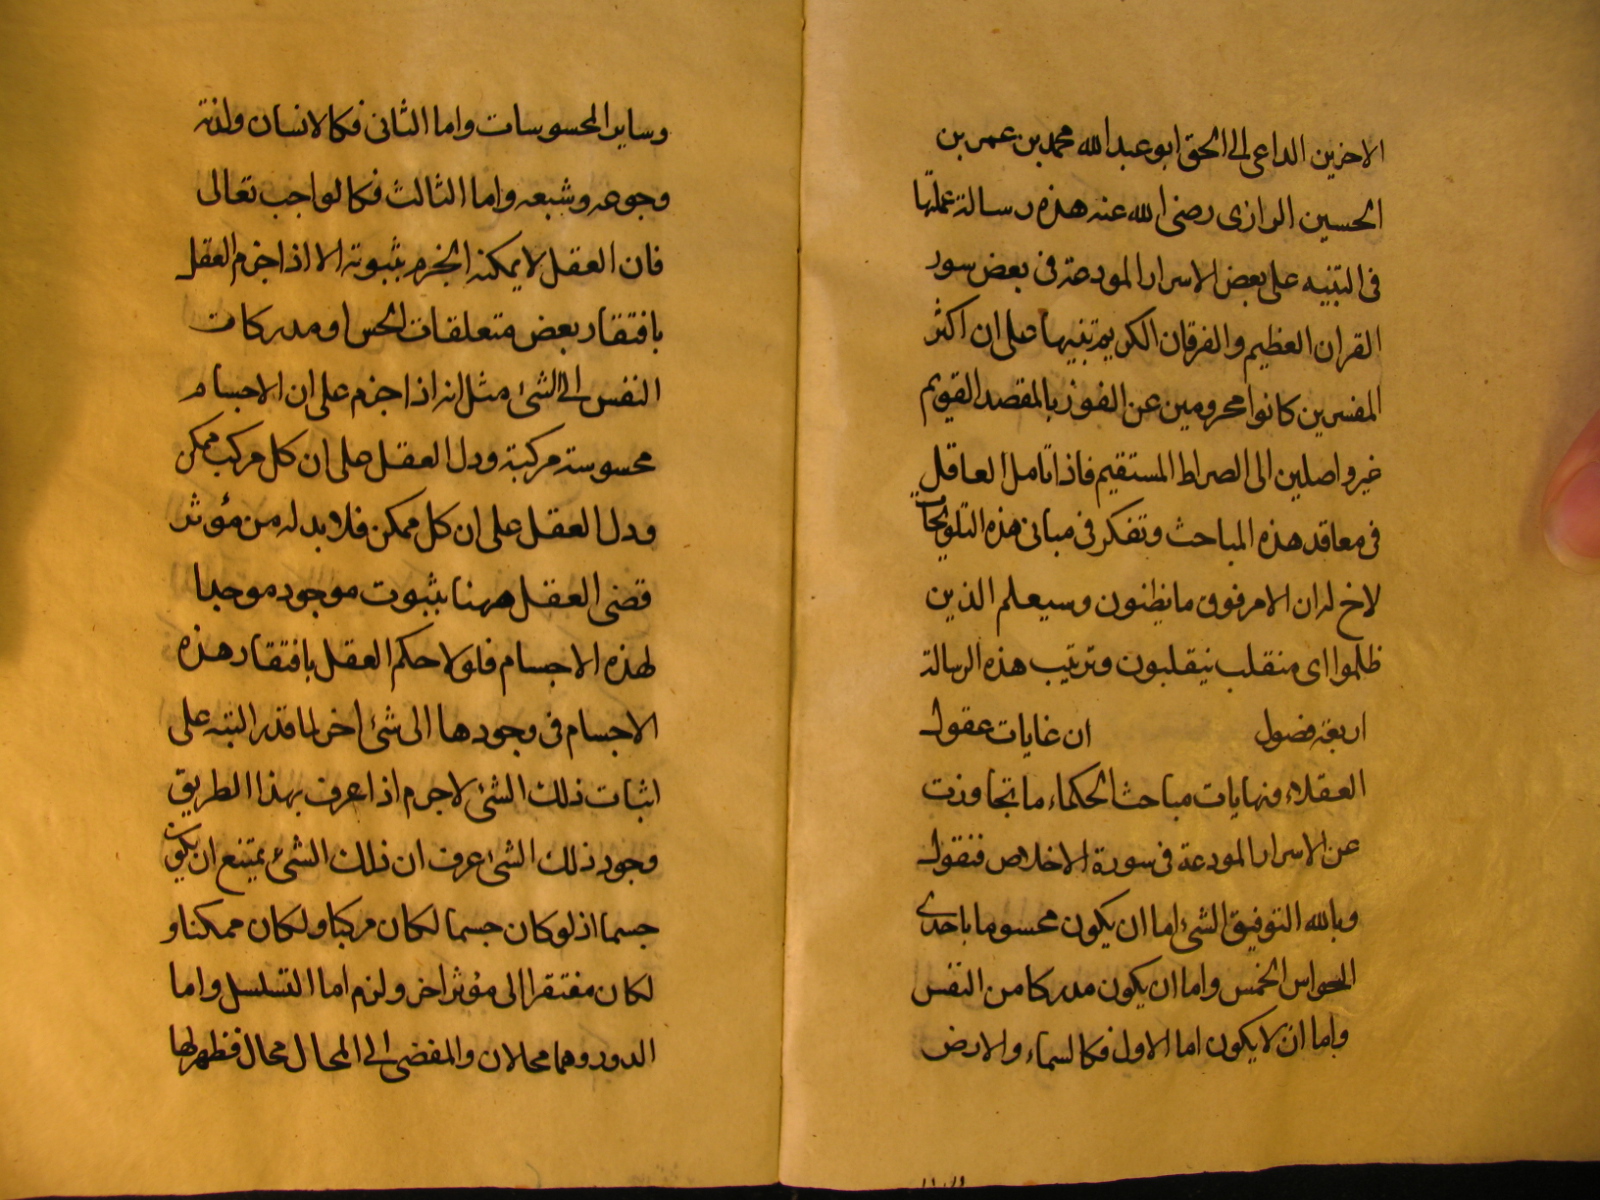 الاخرين الداعى الى الحق ابو عبد الله محمد بن عمر بن
الحسين الرازى رضى الله عنه هذه رسالة عملتها
فى التنبيه على بعض الاسرار المودعة فى بعض سور
القران العظيم والفرقان الكريم تنبيها على ان اكثر
المفسرين كانوا محرومين عن الفوز بالمقصد القويم
غير واصلين الى الصراط المستقيم فاذا تامل العاقل
فى معاقد هذه المباحث وتفكر فى مبانى هذه التلويحات
لاح له ان الامر فوق ما يظنون وسيعلم الذين
ظلموا اى منقلب ينقلبون وترتيب هذه الرسالة
اربعة فصول ان غايات عقول
العقلاء ونهايات مباحث الحكماء ما تجاوزت
عن الاسرار المودعة فى سورة الاخلاص فنقول
وبالله التوفيق الشئ اما ان يكون محسوسا باحدى
الحواس الخمس واما ان يكون مدركا من النفس
واما ان لا يكون اما الاول فكالسماء والارض
وساير المحسوسات واما الثانى فكالانسان ولذته
وجوعه وشبعه واما الثالث فكالواجب تعالى
فان العقل لا يمكنه الجزم بثبوته الا اذا جزم العقل
بافتقار بعض متعلقات الحس او مدركات
النفس الى الشئ مثل انه اذا جزم على ان الاجسام
محسوسة مركبة ودل العقل على ان كل مركب ممكن
ودل العقل على ان كل ممكن فلا بد له من مؤثر
قضى العقل ههنا بثبوت موجود موجدا
لهذه الاجسام فلولا حكم العقل بافتقار هذه
الاجسام فى وجودها الى شئ اخر لما قدر البتة على
اثبات ذلك الشئ لا جرم اذا عرف بهذا الطريق
وجود ذلك الشئ عرف ان ذلك الشئ يمتنع ان يكون
جسما اذ لو كان جسما لكان مركبا ولكان ممكنا و
لكان مفتقرا الى مؤثر اخر ولزم اما التسلسل واما
الدور وهما محالان والمفضى الى المحال محال فظهر لها